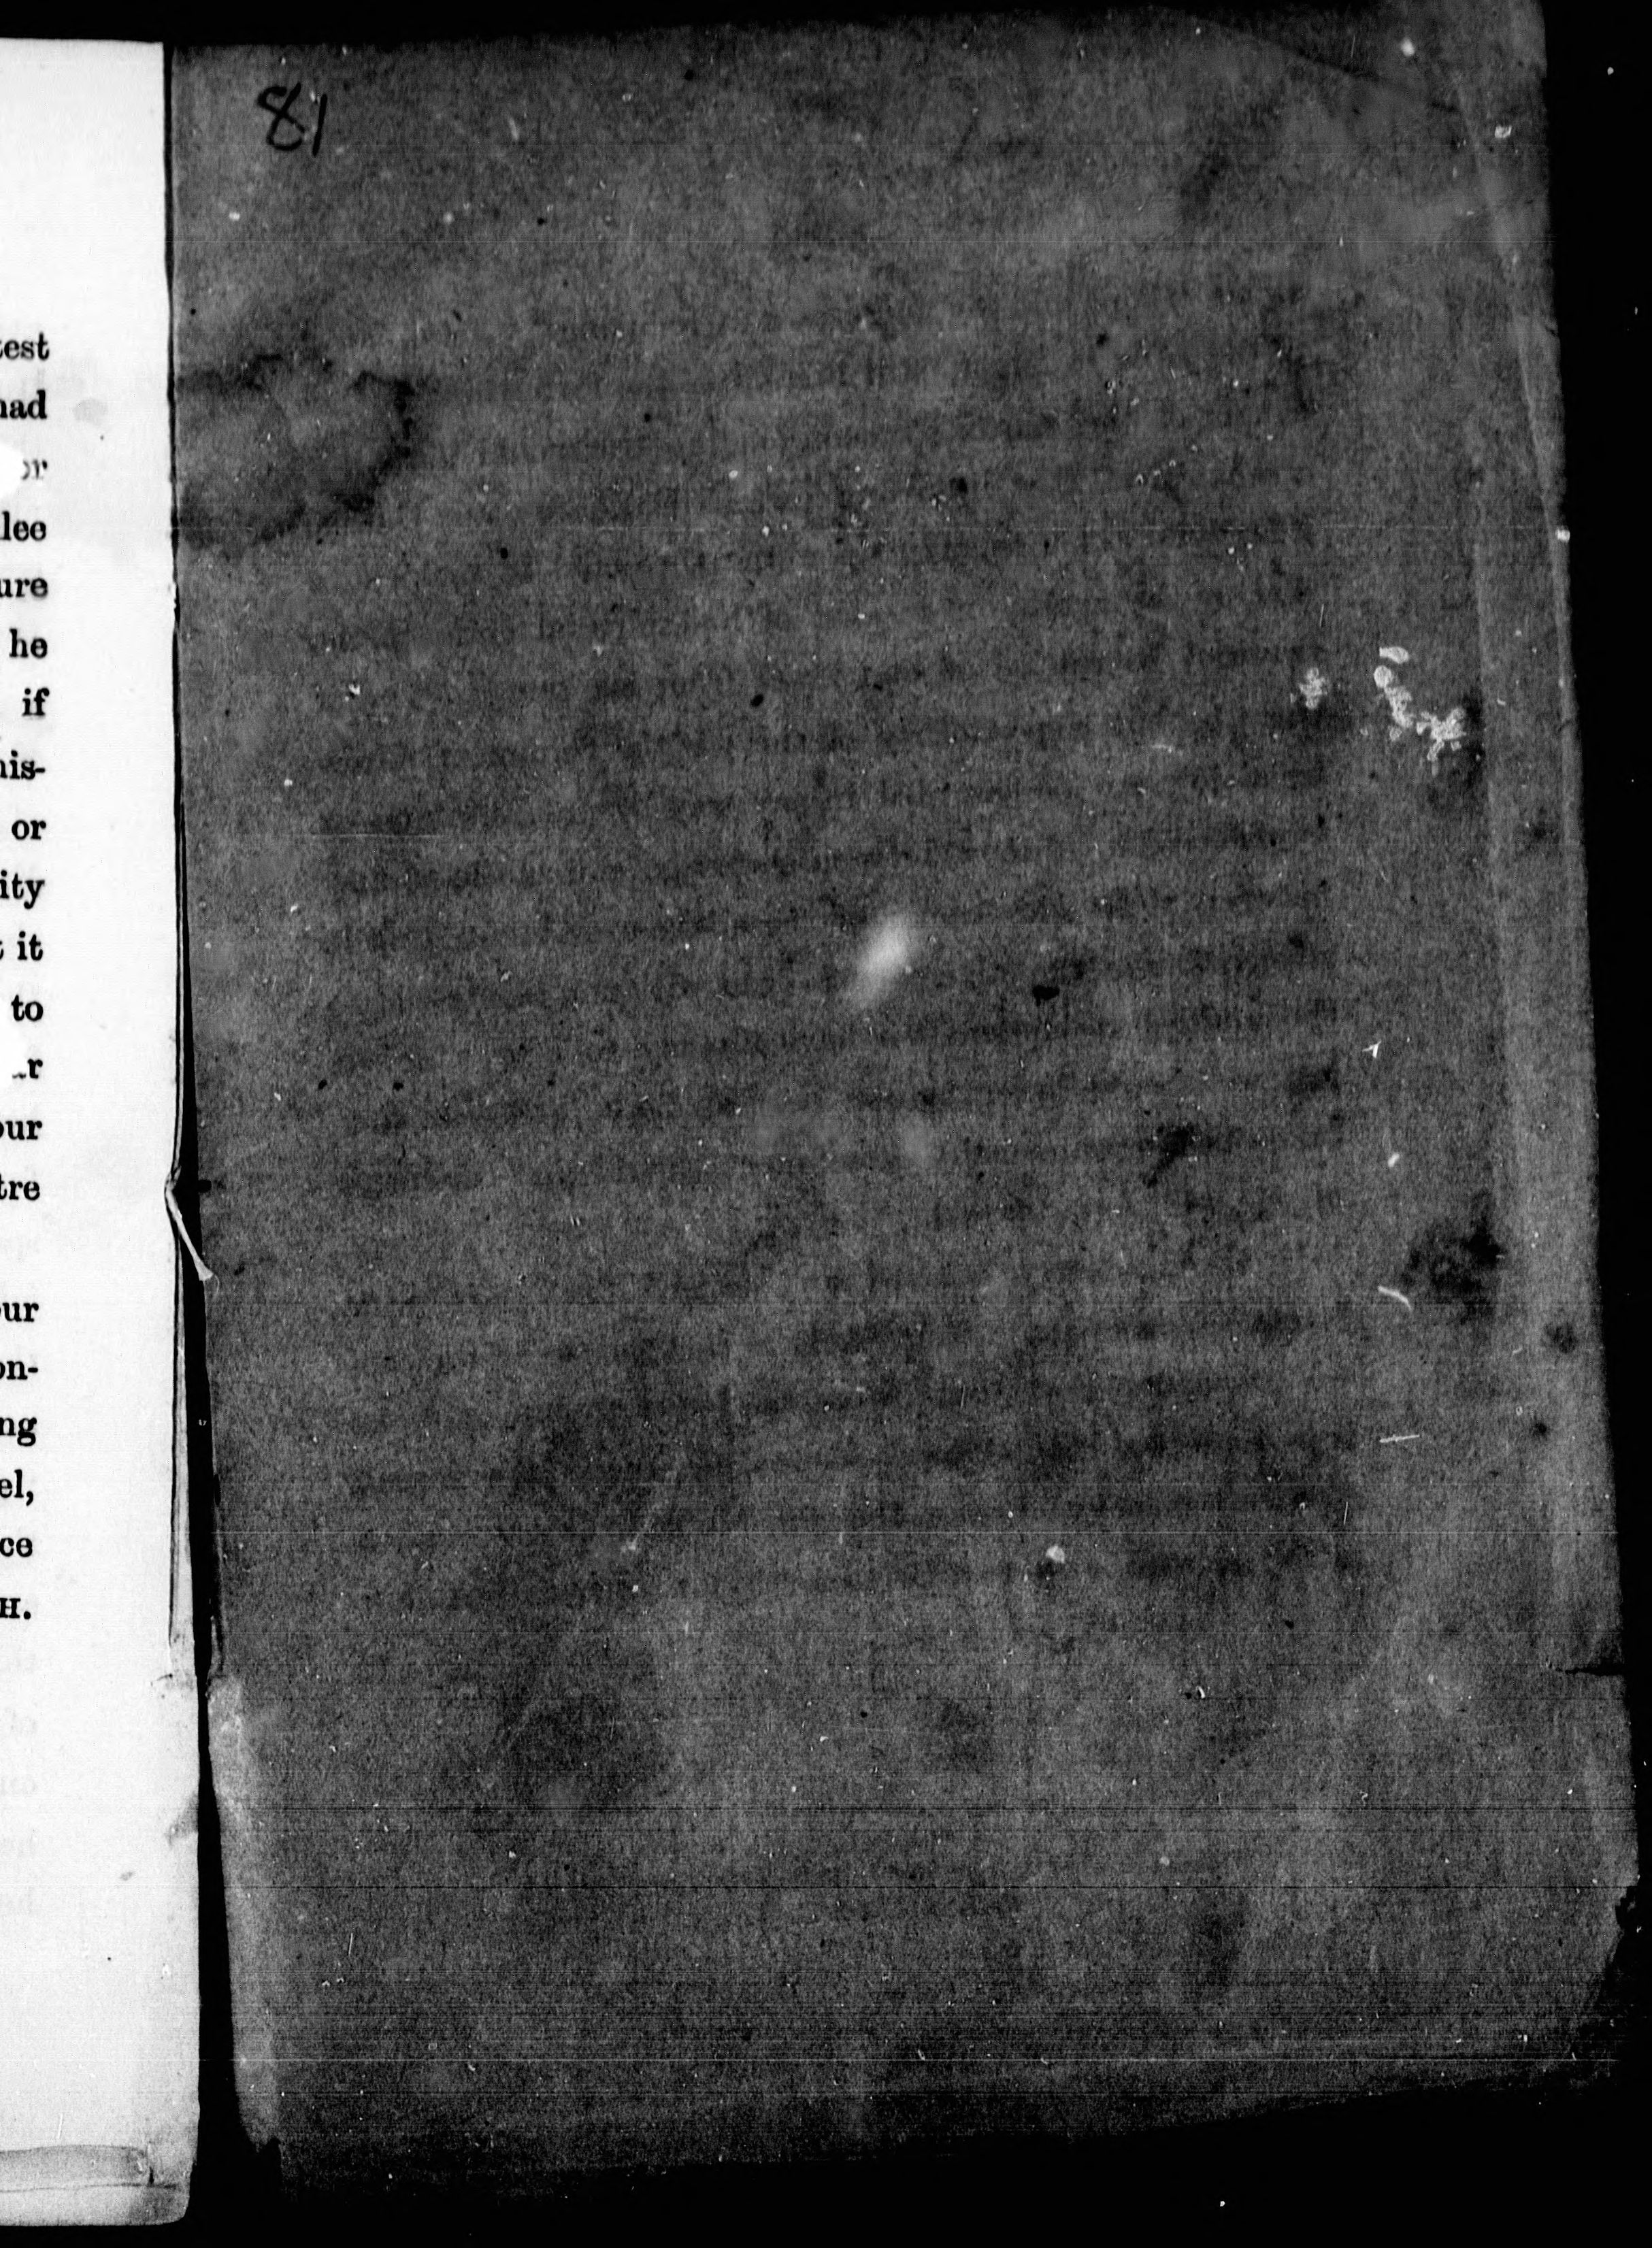 test
had
or
lee
ure
he
if
his-
or
ity
it
to
r
our
tre
our
on-
ng
el,
ce
H.
81